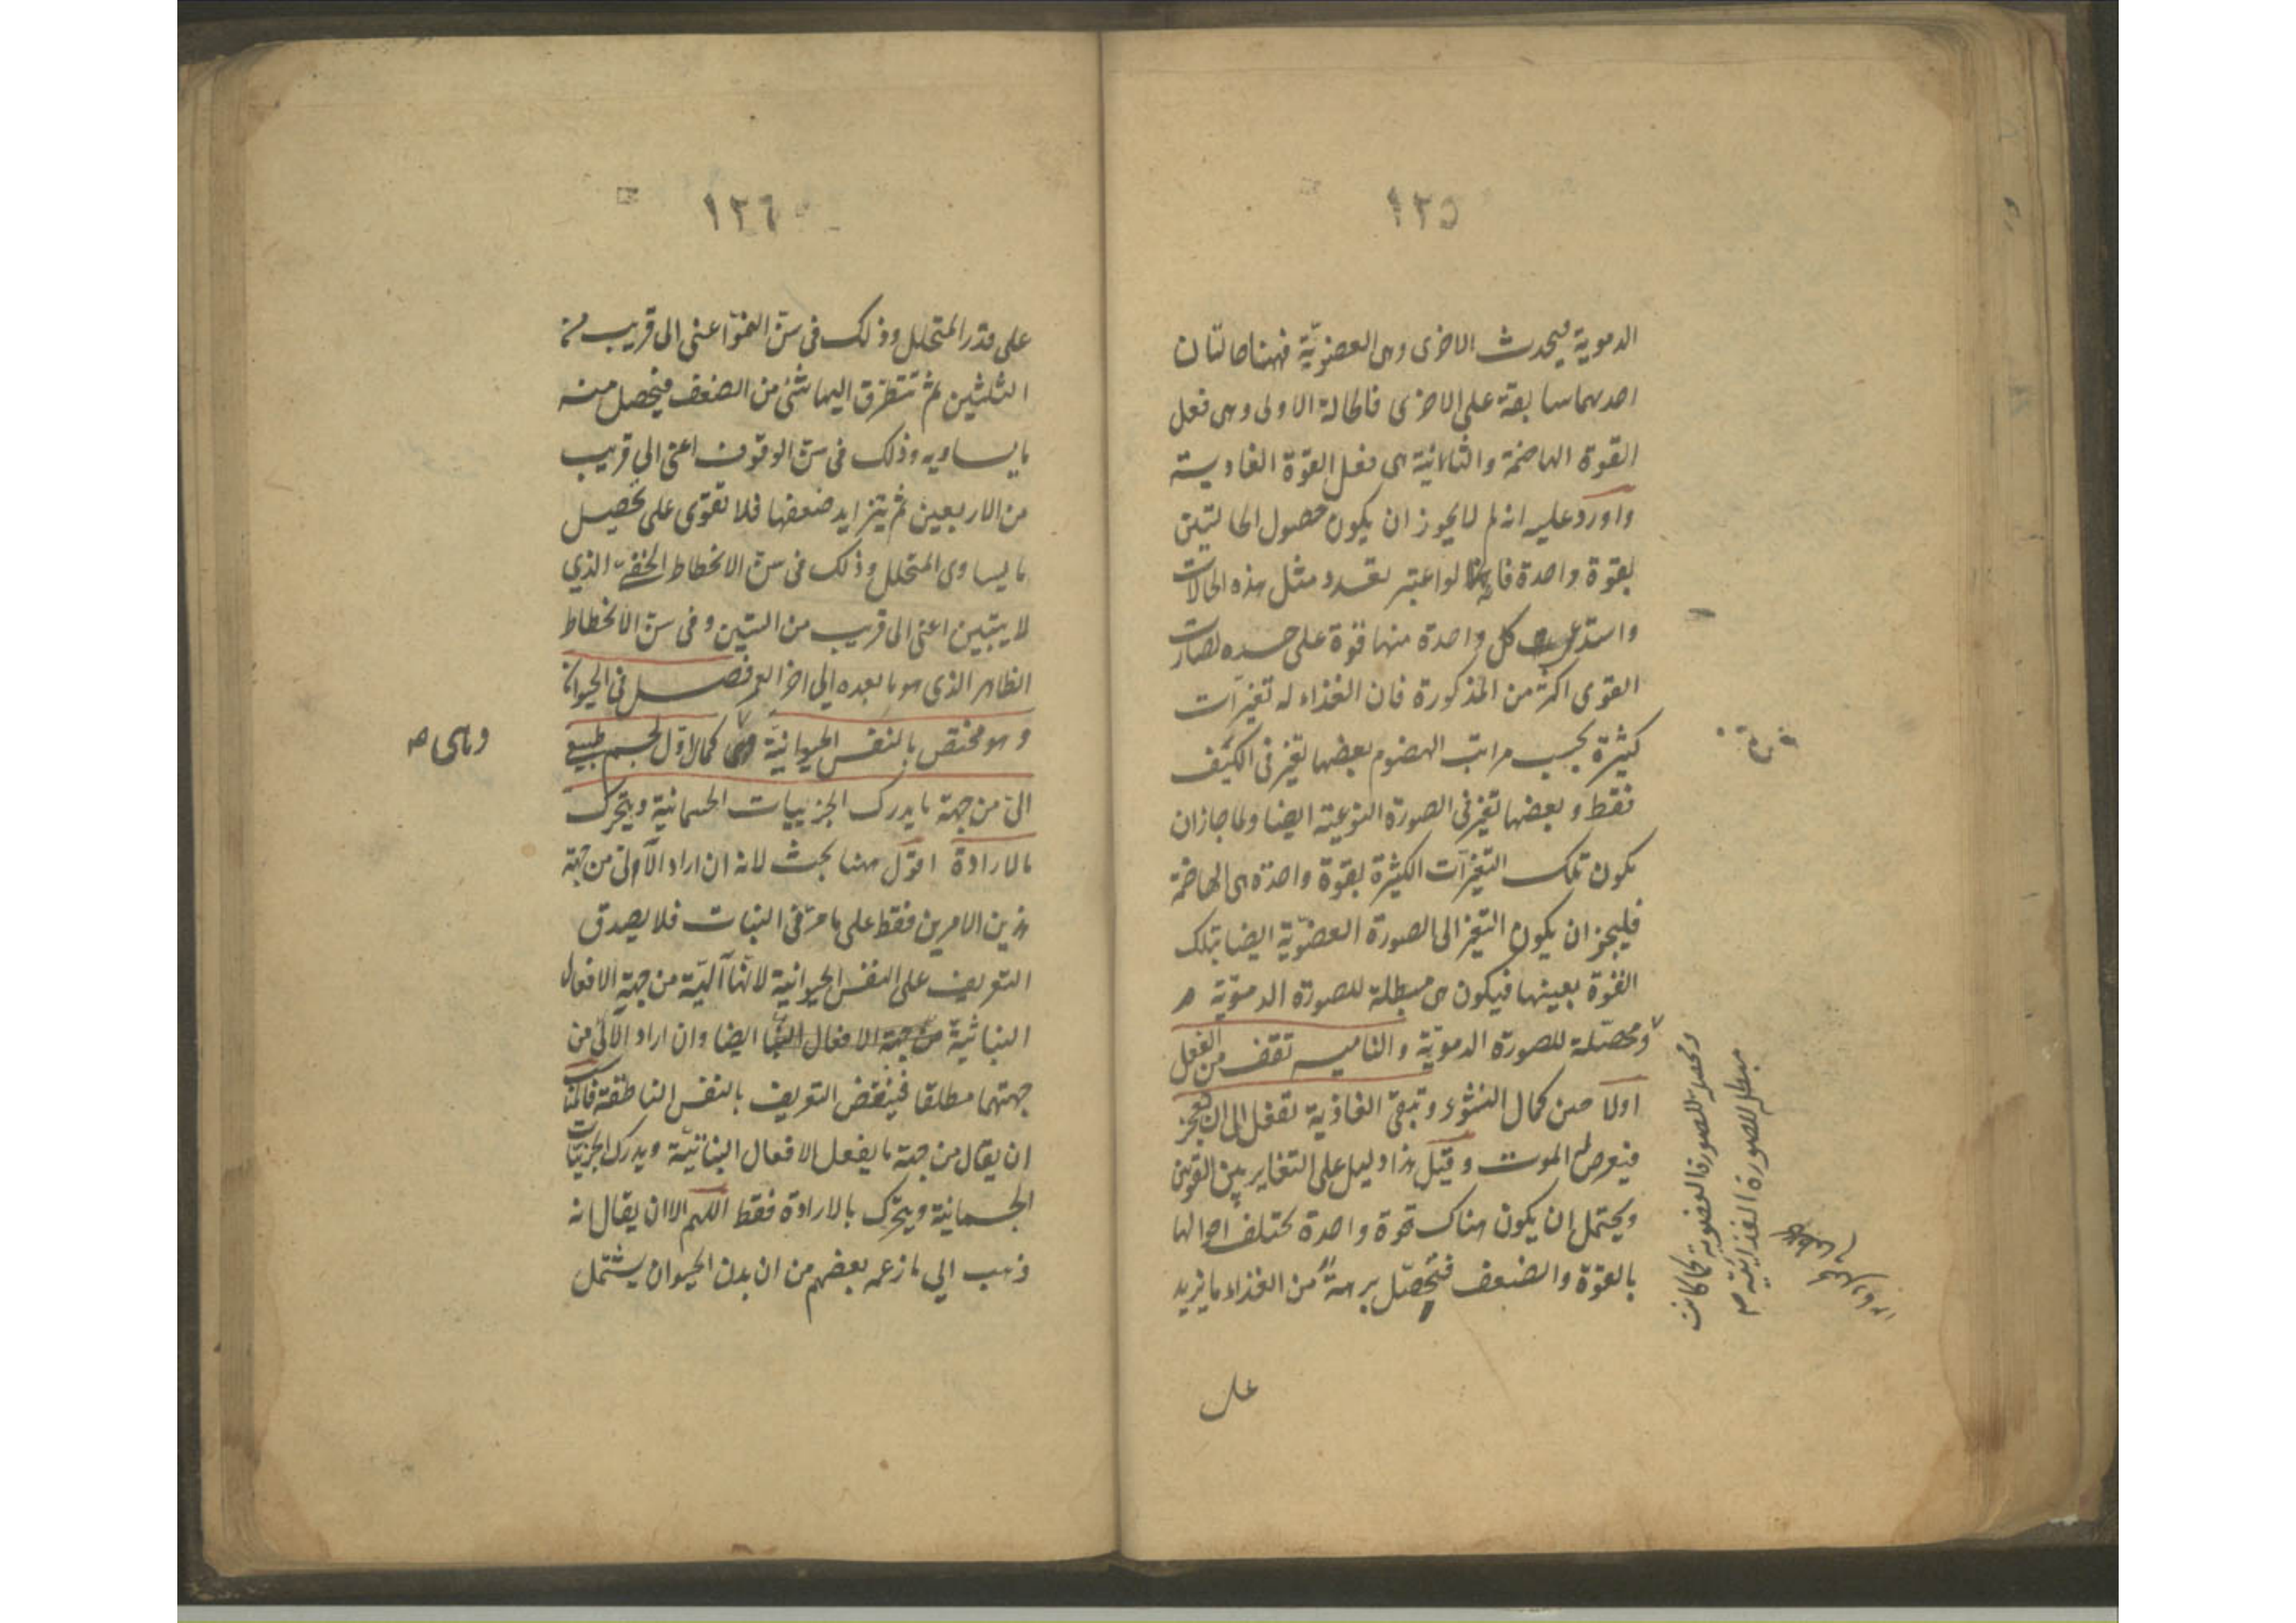 ١٢٥
الدموية فيحدث الاخرى وهى العضويّة فههنا حالتان
احدهما سابقة على الاخرى فالحالة الاولى وهى فعل
القوة الهاضمة والثانية هى فعل القوة الغاذية
واورد عليه انه لم لا يجوز ان يكون حصول الحالتين
بقوة واحدة فانه لو اعتبر تعدد مثل هذه الحالات
واستدعى كل واحدة منها قوة على حده لصارت
القوى اكثر من المذكورة فان الغذاء له تغيرات
كثيرة بحسب مراتب الهضوم بعضها تغير فى الكيف
فقط و بعضها تغير فى الصورة النوعية ايضا ولما جاز ان
يكون تلك التغيرات الكثيرة بقوة واحدة هى الهاضمة
فليجز ان يكون التغير الى الصورة العضويّة ايضا بتلك
القوة بعينها فيكون هى مبطلة للصورة الدمويّة
ومحصّلة للصورة الدمويّة والناميه تقف من الفعل
اولا حين كمال النشوء و تبقى الغاذية تفعل الى ان تعجز
فيعرض الموت و قيل هذا دليل على التغاير بين القوتين
ويحتمل ان يكون هناك قوة واحدة تختلف احوالها
بالقوّة والضعف فتحصّل برهة من الغذاء ما يزيد
ومحصلة للصورة العضوية كما كانت
مبطلة للصورة الغذائيّه
على
١٢٦
على قدر المتحلل وذلك فى سن النمو اعنى الى قريب من
الثلثين ثم تتطرق اليها شئ من الضعف فيحصل منه
ما يساويه وذلك فى سن الوقوف اعنى الى قريب
من الاربعين ثم يتزايد ضعفها فلا تقوى على تحصيل
ما يساوى المتحلل وذلك فى سن الانحطاط الخفى الذي
لا يتبين اعنى الى قريب من الستين و فى سن الانحطاط
الظاهر الذى هو ما بعده الى اخر العمر فصل فى الحيوان
و هو مختص بالنفس الحيوانية كمال اول لجسم طبيعى
الى من جهة ما يدرك الجزييات الجسمانية و يتحرك
بالارادة اقول ههنا بحث لانه ان اراد الآلى من جهة
هذين الامرين فقط على ما مرّ فى النبات فلا يصدق
التعريف على النفس الحيوانية لانها آلية من جهة الافعال
النباتية من جهة الافعال ايضا وان اراد الآلى من
جهتهما مطلقا فينتقض التعريف بالنفس الناطقة فالمناسب
ان يقال من جهة ما يفعل الافعال النباتية و يدرك الجزئيات
الجسمانية ويتحرك بالارادة فقط اللهم الا ان يقال انه
ذهب الي ما زعمه بعضهم من ان بدن الحيوان يشتمل
وهى